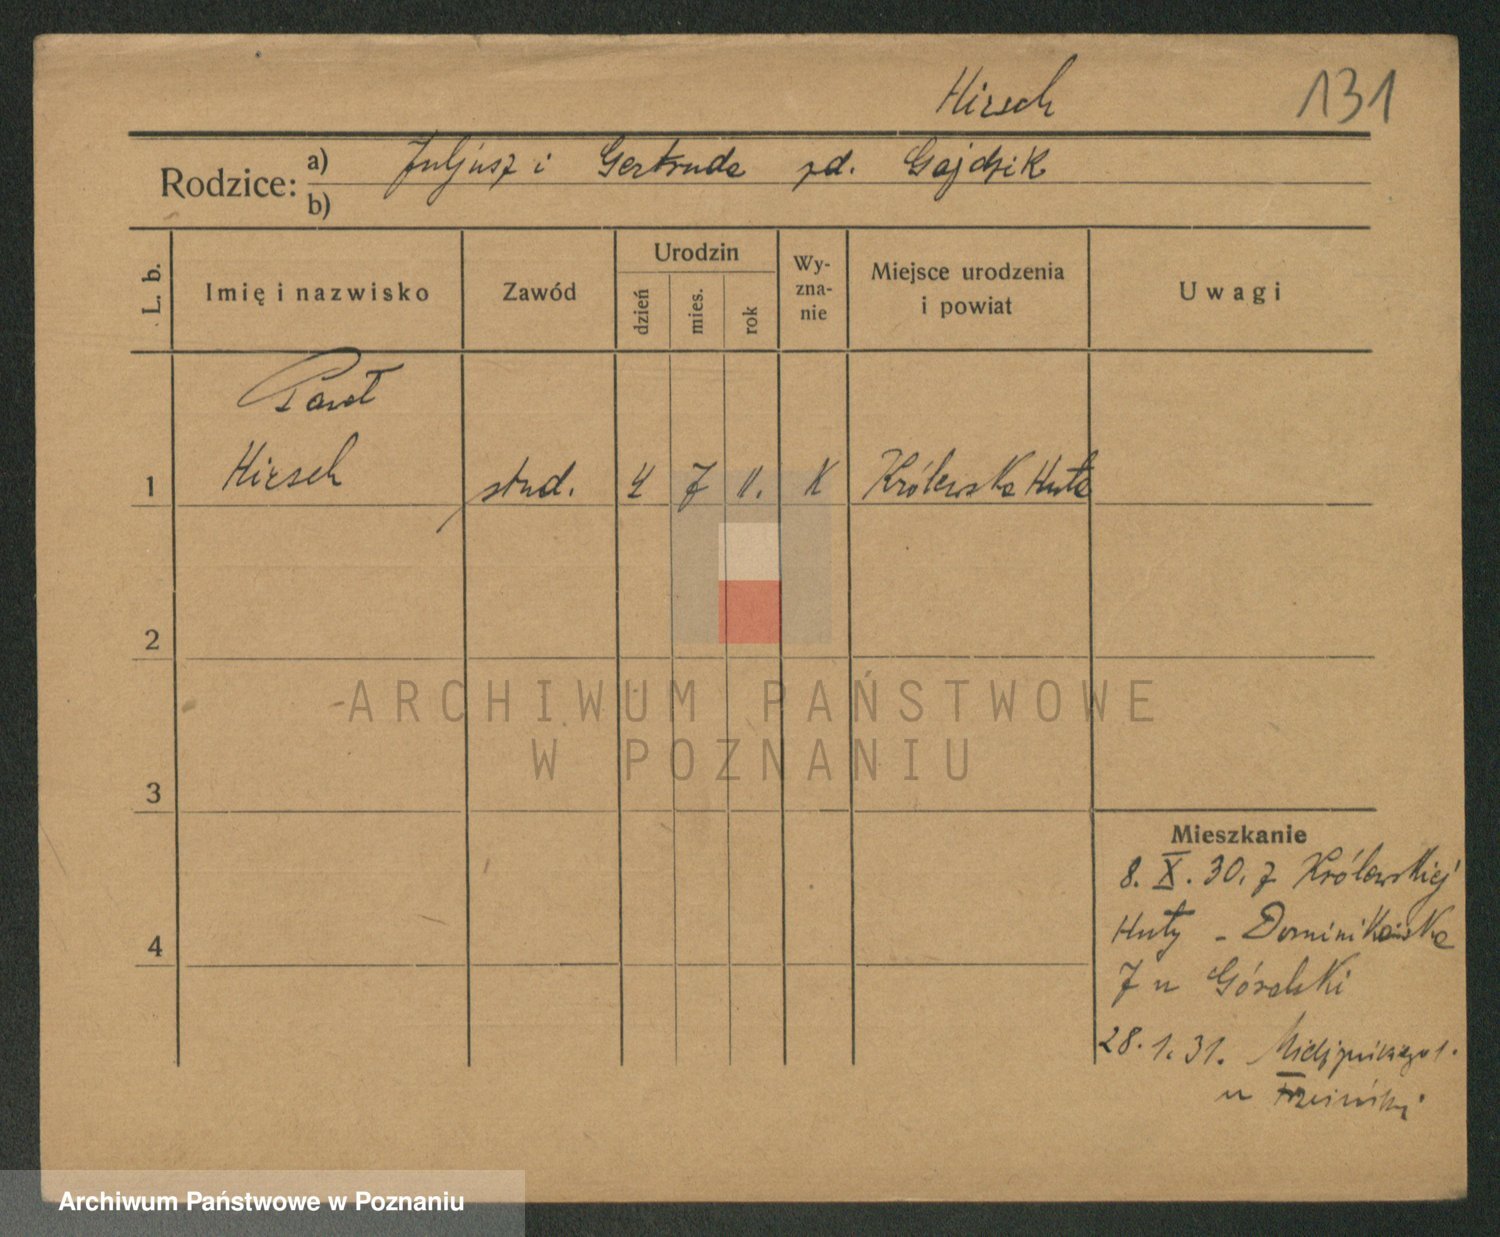 Hirsch
131
Rodzice: a) Juljusz i Gertruda zd. Gajdzik
b)
L. b.
Imię i nazwisko
Zawód
Urodzin
dzień
mies.
rok
Wy-
zna-
nie
Miejsce urodzenia
i powiat
Uwagi
Paweł
1 Hirsch stud. 4 7 11. K Królewska Huta
2
3
4
Mieszkanie
8. X. 30. z Królewskiej
Huty - Dominikańska
7 u Góralski
28. 1. 31.
u
ARCHIWUM PAŃSTWOWE
W POZNANIU
Archiwum Państwowe w Poznaniu